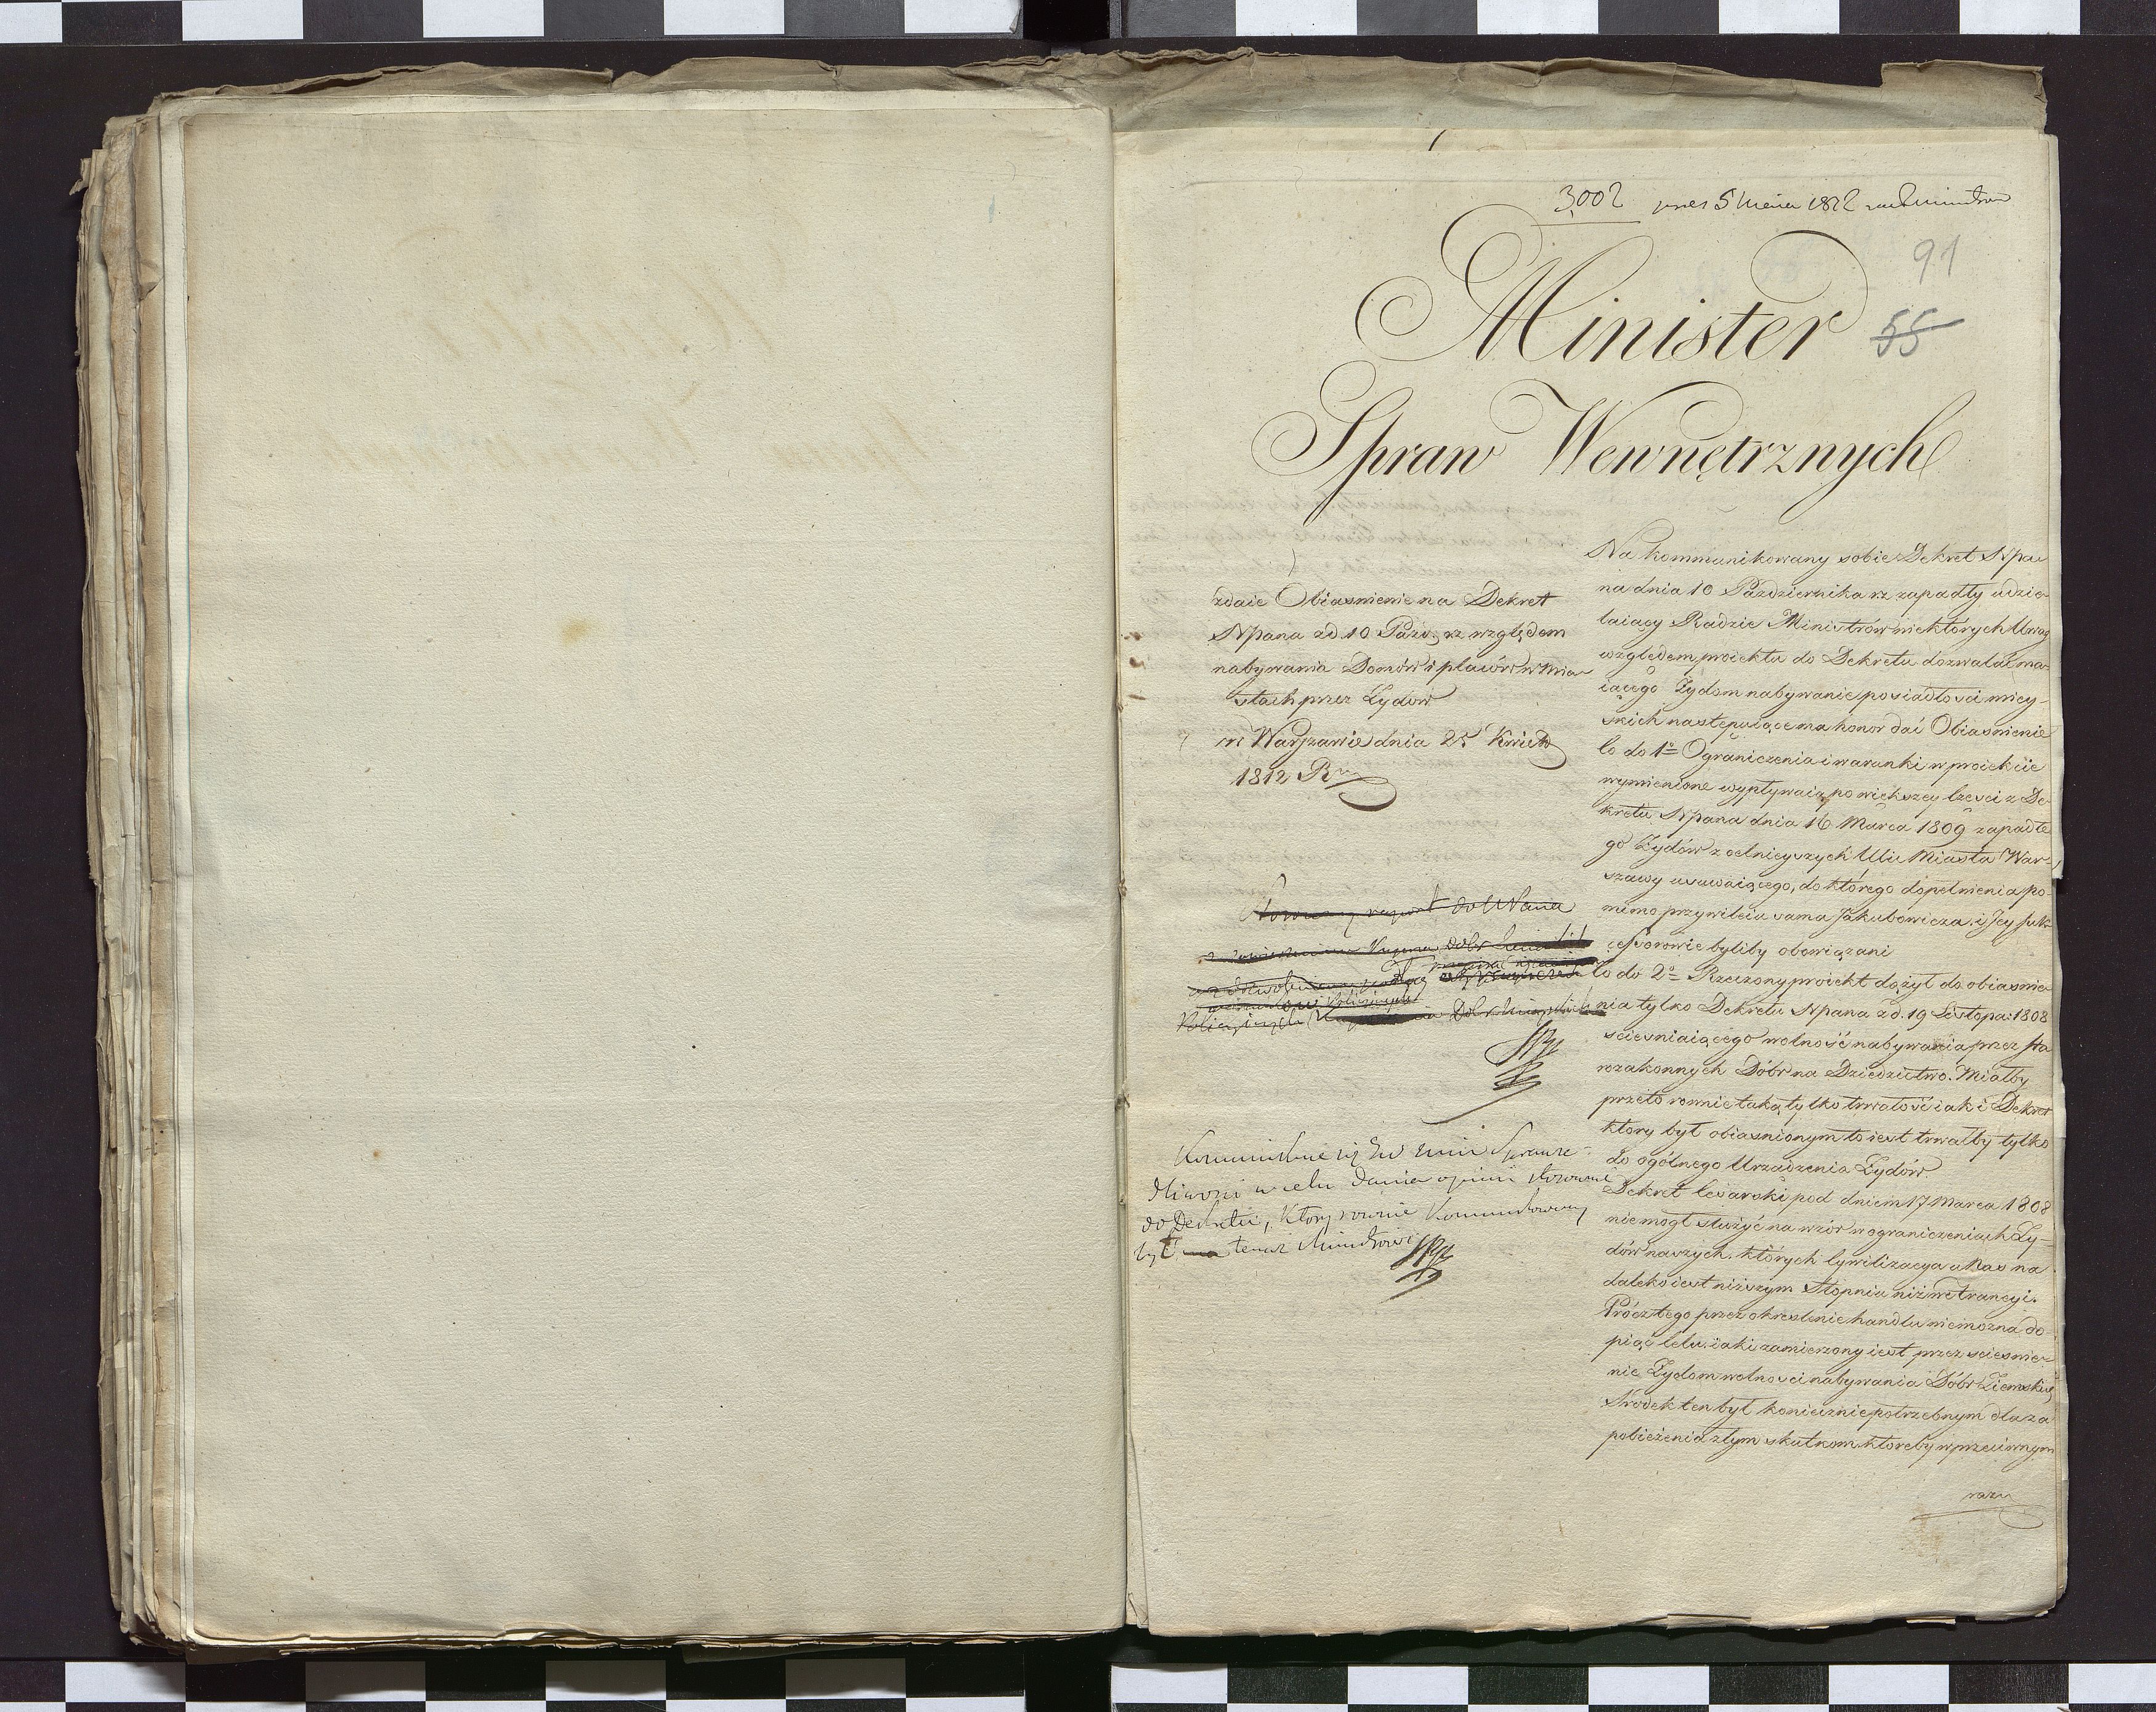 3,002
1812
91
55
Minister
Spraw Wewnętrznych
zdaie Obiasnienie na Dekret
NPana zd 10 Pazd. rz względem
nabywania Domów i placów w Mia-
stach przez Żydów
w Warszawie dnia 25 Kwietn
1812 R
Na kommunikowany sobie Dekret NPa-
na dnia 10 Pazdziernika rz zapadły udzie-
laiący Radzie Ministrów niektórych Uwag
względem proiektu do Dekretu dozwalać ma-
iącego Żydom nabywanie posiadłości miey-
skich następuiące ma honor dać Obiasnienie
Co do 1º Ograniczenia i warunki w proiekcie
wymienione wypływaią po większey Części z De-
kretu NPana dnia 16 Marca 1809 zapadłe
go Żydów z celnieyszych Ulic Miasta War-
szawy usuwaiącego, do którego dopełnienia po-
mimo przywileiu sama Jakubowicza i Jey suk-
cessorowie byliby obowiązani
Co do 2º Rzeczony proiekt dążył do obiasnie-
nia tylko Dekretu NPana zd. 19 Listopa: 1808
sciesniaiącego wolność nabywania przez sta
rozakonnych Dóbr na Dziedzictwo. Miałby
przeto rownie taką tylko trwałość iak i Dekret
ktory był obiasnionym to iest trwałby tylko
do ogólnego Urządzenia Żydów.
Dekret Cesarski pod dniem 17 Marca 1808
nie mogł służyć na wzór w ograniczeniach Ży-
dów naszych, których Cywilizacya u Nas na
daleko iest niższym Stopniu niż we Francyi.
Prócz tego przez okreslenie handlu nie można do-
piąć Celu iaki zamierzony iest przez sciesnie-
nie Żydom wolności nabywania Dóbr Ziemskich
Srodek ten był koniecznie potrzebnym dla za
pobieżenia złym skutkom któreby w przeciwnym
razu
raport do NPana
Kommunikuie się JW Sprawie-
dliwości w celu dania opinii stosownie
do Dekretu, który rownie kommunikowany
był teraz Ministrowi